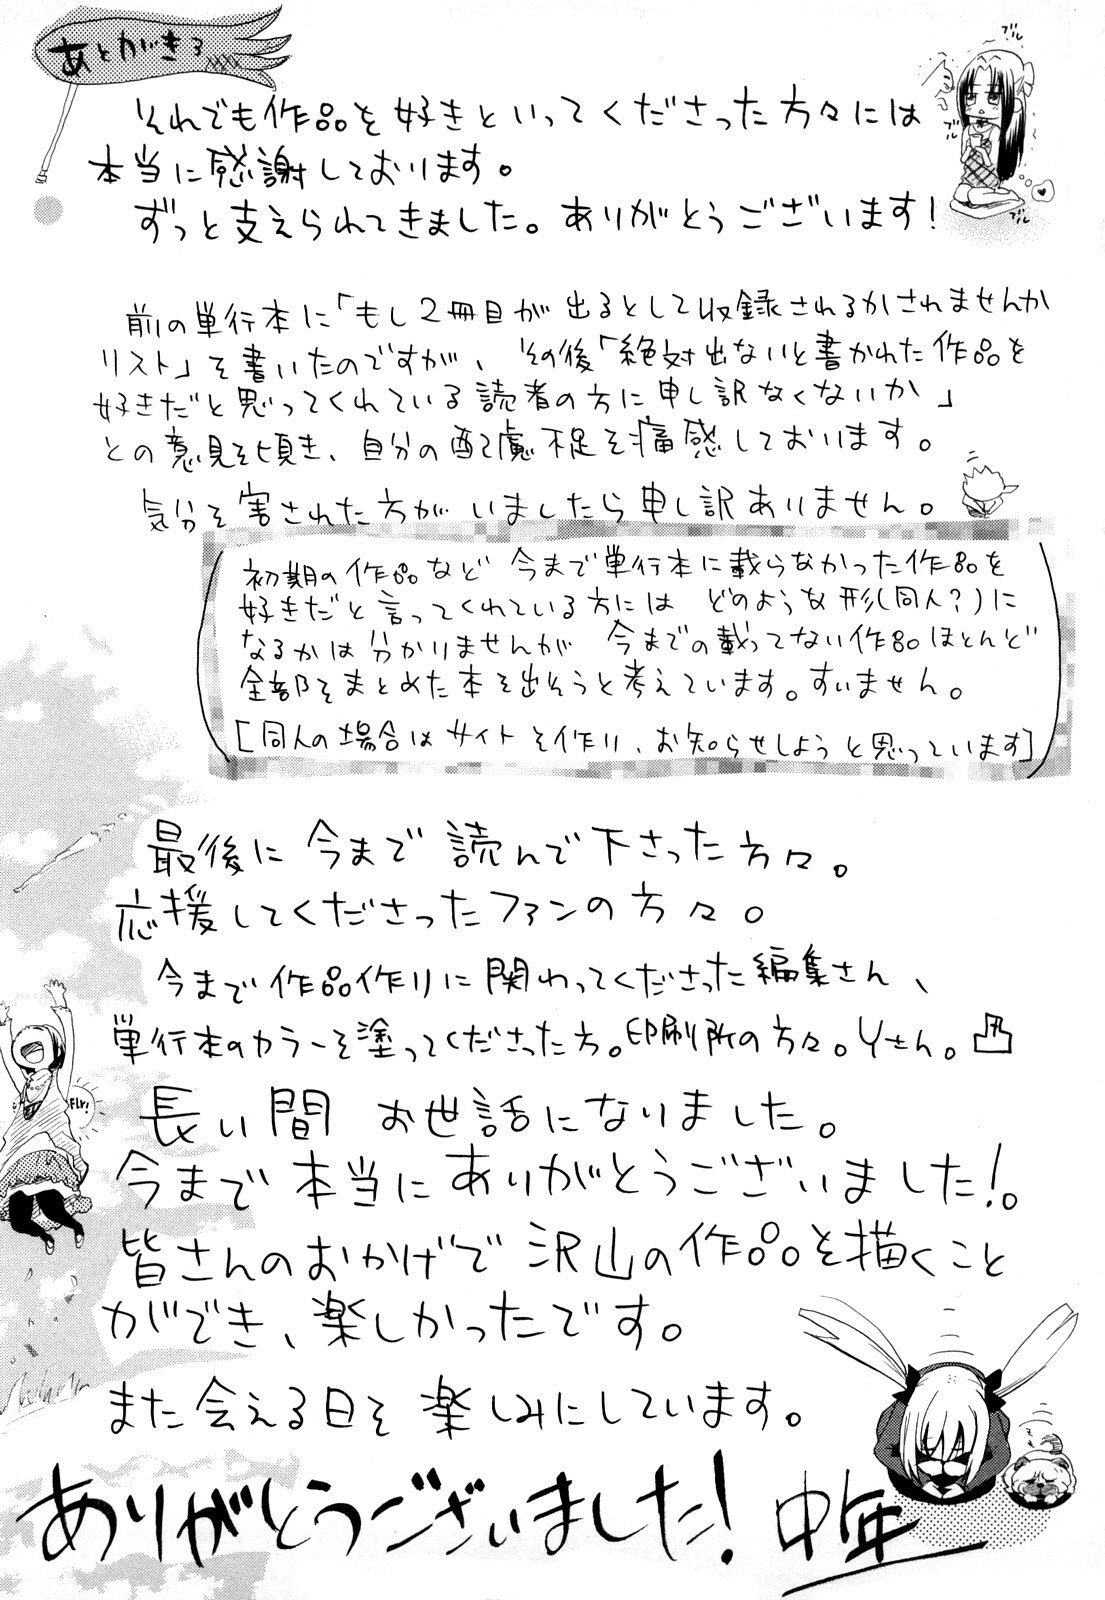 あとがき3
ブル
ブル
ブル
それでも作品を好きといってくださった方々には
本当に感謝しております。
ずっと支えられてきました。ありがとうございます!
前の単行本に「もし2冊目が出るとして収録されるかされませんか
リスト」を書いたのですが、その後「絶対出ないと書かれた作品を
好きだと思ってくれている読者の方に申し訳なくないか」
との意見を頂き、自分の配慮不足を痛感しております。
気分を害された方がいましたら申し訳ありません。
初期の作品など 今まで単行本に載らなかった作品を
好きだと言ってくれている方には どのような形(同人?)に
なるかは分かりませんが 今までの載ってない作品ほとんど
全部をまとめた本を出そうと考えています。すいません。
[同人の場合はサイトを作り、お知らせしようと思っています]
最後に今まで読んで下さった方々。
応援してくださったファンの方々。
今まで作品作りに関わってくださった編集さん、
単行本のカラーを塗ってくださった方。印刷所の方々。Yさん。
FLY!
長い間 お世話になりました。
今まで本当にありがとうございました!。
皆さんのおかげで沢山の作品を描くこと
ができ、楽しかったです。
また会える日を楽しみにしています。
ありがとうございました! 中年